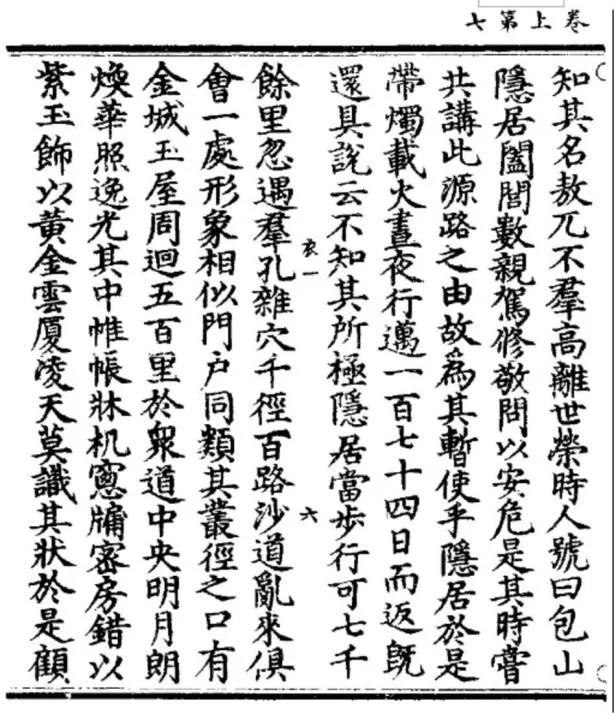 卷上第七
知其名敖兀不羣高離世榮時人號曰包山
隱居闔閭數親駕修敬問以安危是其時嘗
共講此源路之由故為其暫使乎隱居於是
帶燭載火晝夜行邁一百七十四日而返旣
還具說云不知其所極隱居當步行可七千
衣一
六
餘里忽遇羣孔雜穴千徑百路沙道亂來俱
會一處形象相似門户同類其叢徑之口有
金城玉屋周迴五百里於衆道中央明月朗
煥華照逸光其中帷帳牀机窻牖密房錯以
紫玉飾以黃金雲厦淩天莫識其狀於是顧